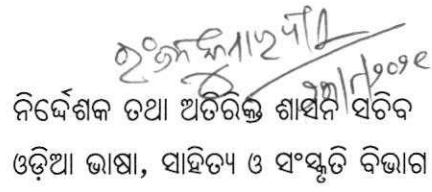 ନିର୍ଦ୍ଦେଶକ ତଥା ଅତିରିକ୍ତ ଶାସନ ସଚିବ
ଓଡ଼ିଆ ଭାଷା, ସାହିତ୍ୟ ଓ ସଂସ୍କୃତି ବିଭାଗ